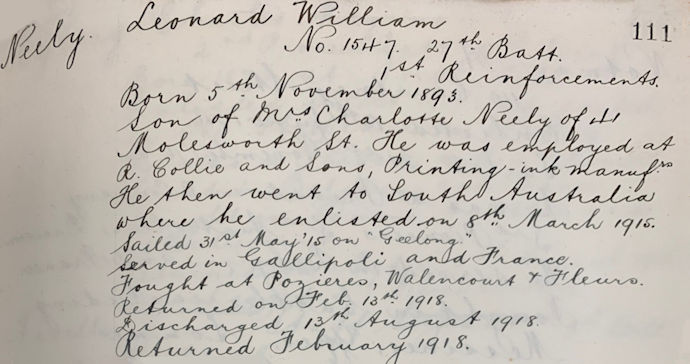 Neely. Leonard William 111
No. 1547. 27th Batt.
1st Reinforcements.
Born 5th November 1893.
Son of Mrs Charlotte Neely of 41
Molesworth St. He was employed at
R. Collie and Sons, Printing-ink manufrs
He then went to South Australia
where he enlisted on 8th March 1915.
Sailed 31st May '15 on "Geelong."
Served in Gallipoli and France.
Fought at Pozieres, Walencourt & Fleurs.
Returned on Feb. 13th 1918.
Discharged, 13th August 1918.
Returned February 1918.